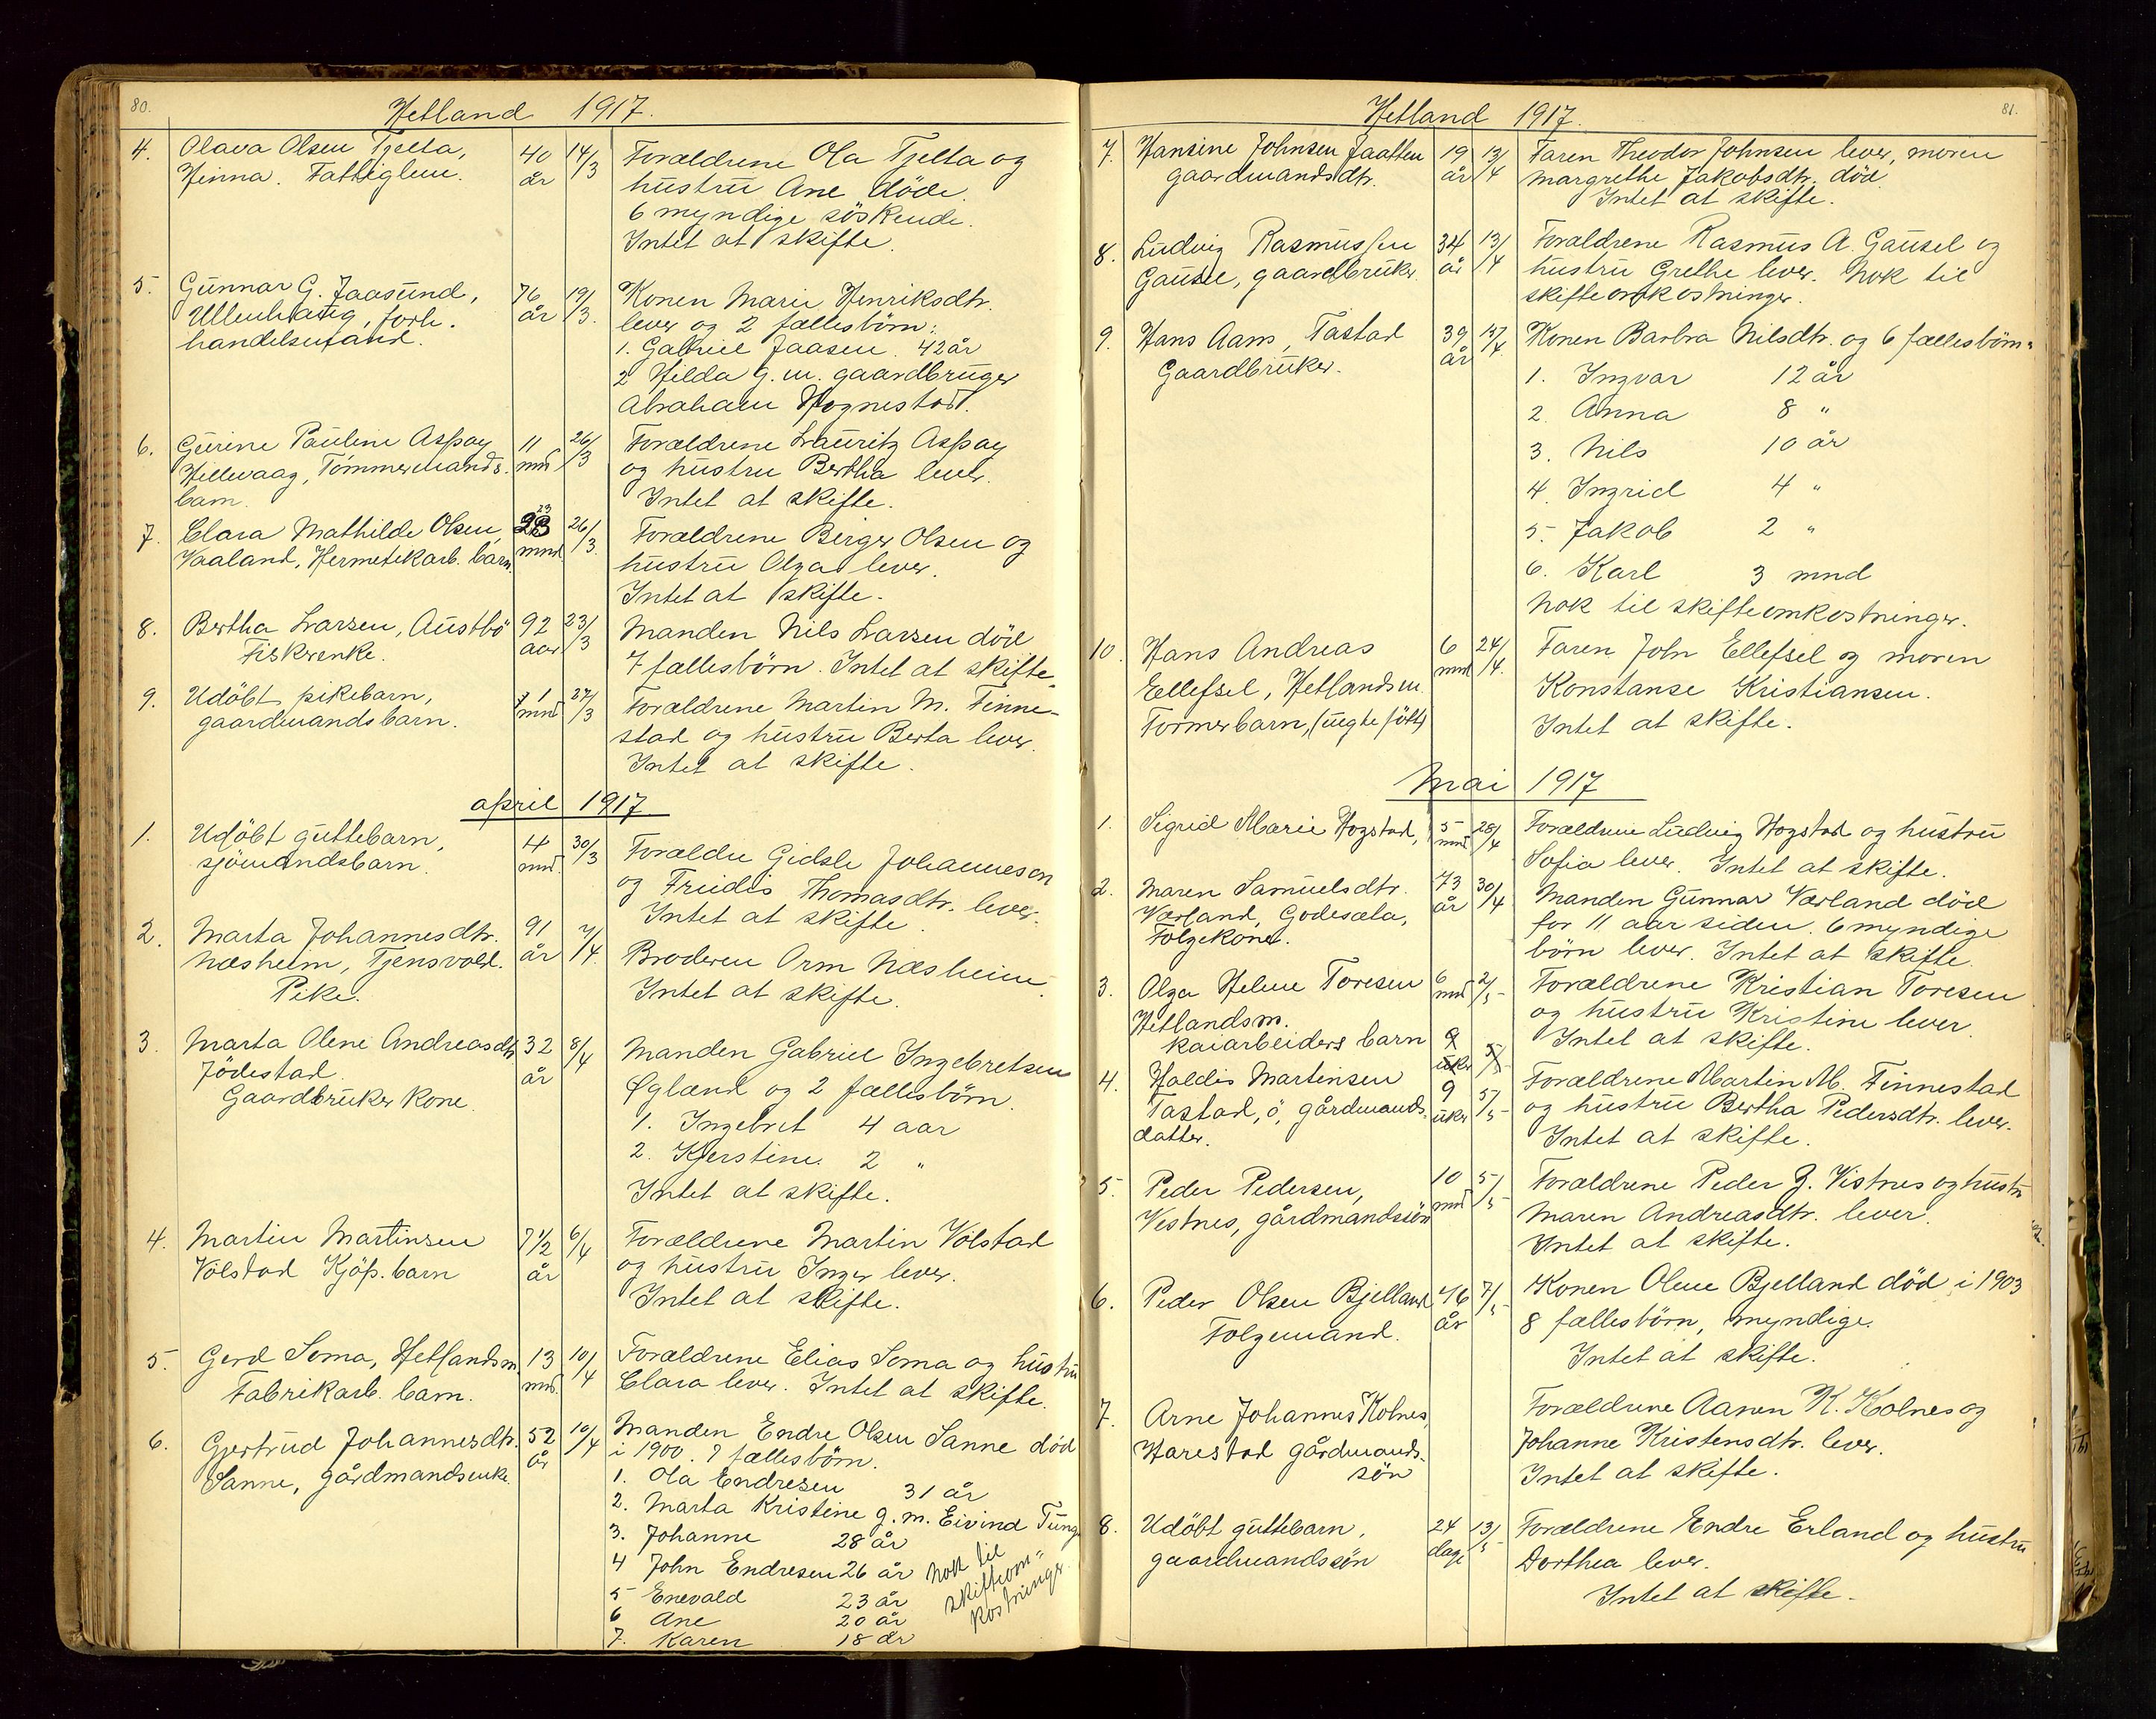 80.
Hetland 1917.
4. Olava Olsen Tjelta, 40 14/3 Forældrene Ola Tjelta og
Hinna. Fattiglem. år hustru Ane döde.
6 myndige söskende.
Intet at skifte.
5. Gunnar G. Jaasund, 76 19/3. Konen Marie Henriksdtr.
Ullenhaug, forh. år lever og 2 fællesbörn:
handelsmand. 1. Gabriel Jaasen. 42 år
2 Hilda g. m. gaardbruger
Abraham Hognestad.
6. Gurine Pauline Aspøy 11 26/3 Forældrene Lauritz Aspøy
Hillevaag, Tömmermands. mnd og hustru Bertha lever.
barn. Intet at skifte.
7. Clara Mathilde Olsen, 23 26/3. Forældrene Birger Olsen og
Vaaland, Hermetikarb. barn. mnd. hustru Olga lever.
Intet at skifte.
8. Bertha Larsen, Austbö 92 23/3 Manden Nils Larsen död
Fiskerenke. aar 7 fællesbörn. Intet at skifte.
9. Udöbt pikebarn, 1 27/3 Forældrene Martin M. Finne-
gaardmandsbarn. mnd stad og hustru Berta lever.
Intet at skifte.
april 1917
1. Udöbt guttebarn, 4 30/3 Forældre Gidsle Johannesen
sjömandsbarn. mnd. og Fruidis Thomasdtr. lever.
Intet at skifte.
2. Marta Johannesdtr. 91 7/4. Broderen Orm Næsheim.
Næsheim, Tjensvold. år Intet at skifte.
Pike.
3. Marta Olene Andreasdtr 32 8/4 Manden Gabriel Ingebretsen
Jödestad. år Øglænd og 2 fællesbörn.
Gaardbruker kone. 1. Ingebret 4 aar
2. Kjerstine. 2 "
Intet at skifte.
4. Martin Martinsen 7 1/2 6/4 Forældrene Martin Volstad
Volstad Kjöp. barn år og hustru Inger lever.
Intet at skifte.
5. Gerd Soma, Hetlandsm 13 10/4 Forældrene Elias Soma og hustru
Fabrikarb. barn. mnd. Clara lever. Intet at skifte.
6. Gjertrud Johannesdtr. 52 10/4 Manden Endre Olsen Sanne död
Sanne, gårdmandsenke. år i 1900. 7 fællesbörn.
1. Ola Endresen 31 år
2. Marta Kristine g. m. Eivind Tunge
3. Johanne 28 år
4 John Endresen 26 år Nok til
5 Enevald 23 år skifteom-
6 Ane 20 år kostninger.
7. Karen 18 år
81.
Hetland 1917.
7. Hansine Johnsen Jaatten 19 13/4 Faren Theodor Johnsen lever, moren
gaardmandsdtr. år Margrethe Jakobsdtr. död.
Intet at skifte.
8. Ludvig Rasmussen 34 13/4 Forældrene Rasmus A. Gausel og
Gausel, gaardbruker. år hustru Grethe lever. Nok til
skifteomkostninger.
9. Hans Aam, Tastad 39 17/4. Konen Barbra Nilsdtr. og 6 fællesbörn:
Gaardbruker. år 1. Ingvar 12 år
2. Anna 8 "
3. Nils 10 år
4. Ingrid 4 "
5. Jakob 2 "
6. Karl 3 mnd
Nok til skifteomkostninger.
10. Hans Andreas 6 24/4. Faren John Ellefsel og moren
Ellefsel, Hetlandsm. mnd Konstanse Kristiansen.
Formerbarn, (uegte født) Intet at skifte.
Mai 1917
1. Sigrid Marie Hogstad, 5 28/4 Forældrene Ludvig Hogstad og hustru
mnd Sofia lever. Intet at skifte.
2. Maren Samuelsdtr. 73 30/4 Manden Gunnar Værland död
Værland, Godesæta, år for 11 aar siden. 6 myndige
Folgekone. börn lever. Intet at skifte.
3. Olga Helene Toresen 6 2/5 Forældrene Kristian Toresen
Hetlandsm. mnd og hustru Kristine lever.
kaiarbeiders barn 9 Intet at skifte.
uker 5/5
4. Haldis Martinsen 9 5/5 Forældrene Martin M. Finnestad
Tastad, ö, gårdmands- uker og hustru Bertha Pedersdtr. lever.
datter. Intet at skifte.
5. Peder Pedersen, 10 5/5 Forældrene Peder J. Vistnes og hustru
Vestnes, gårdmandssön mnd Maren Andreasdtr. lever.
Intet at skifte.
6. Peder Olsen Bjelland 76 7/5 Konen Olene Bjelland död i 1903
Folgemand. år 8 fællesbörn, myndige.
Intet at skifte.
7. Arne Johannes Kolnes, Forældrene Aanen K. Kolnes og
Harestad gårdmands- Johanne Kristensdtr. lever.
sön Intet at skifte.
8. Udöbt guttebarn, 24 13/5 Forældrene Endre Erland og hustru
gaardmandssön dage Dorthea lever.
Intet at skifte.